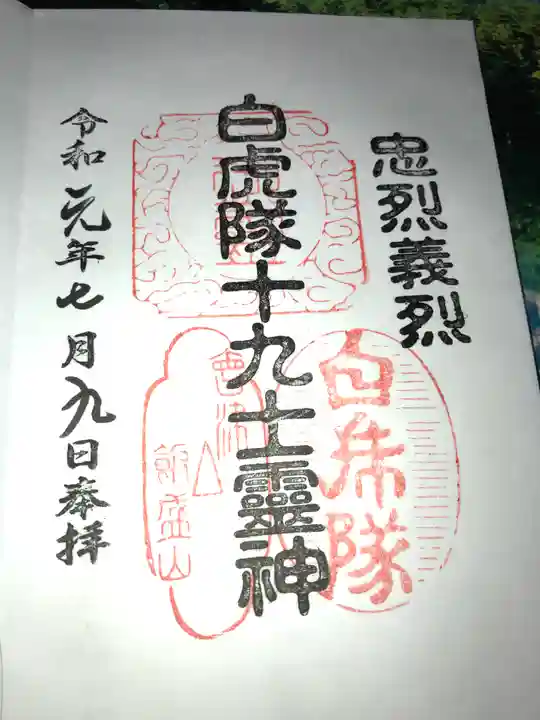 忠烈義烈
白虎隊十九士靈神
令和元年七月九日奉拝
白虎隊
會津
飯盛山